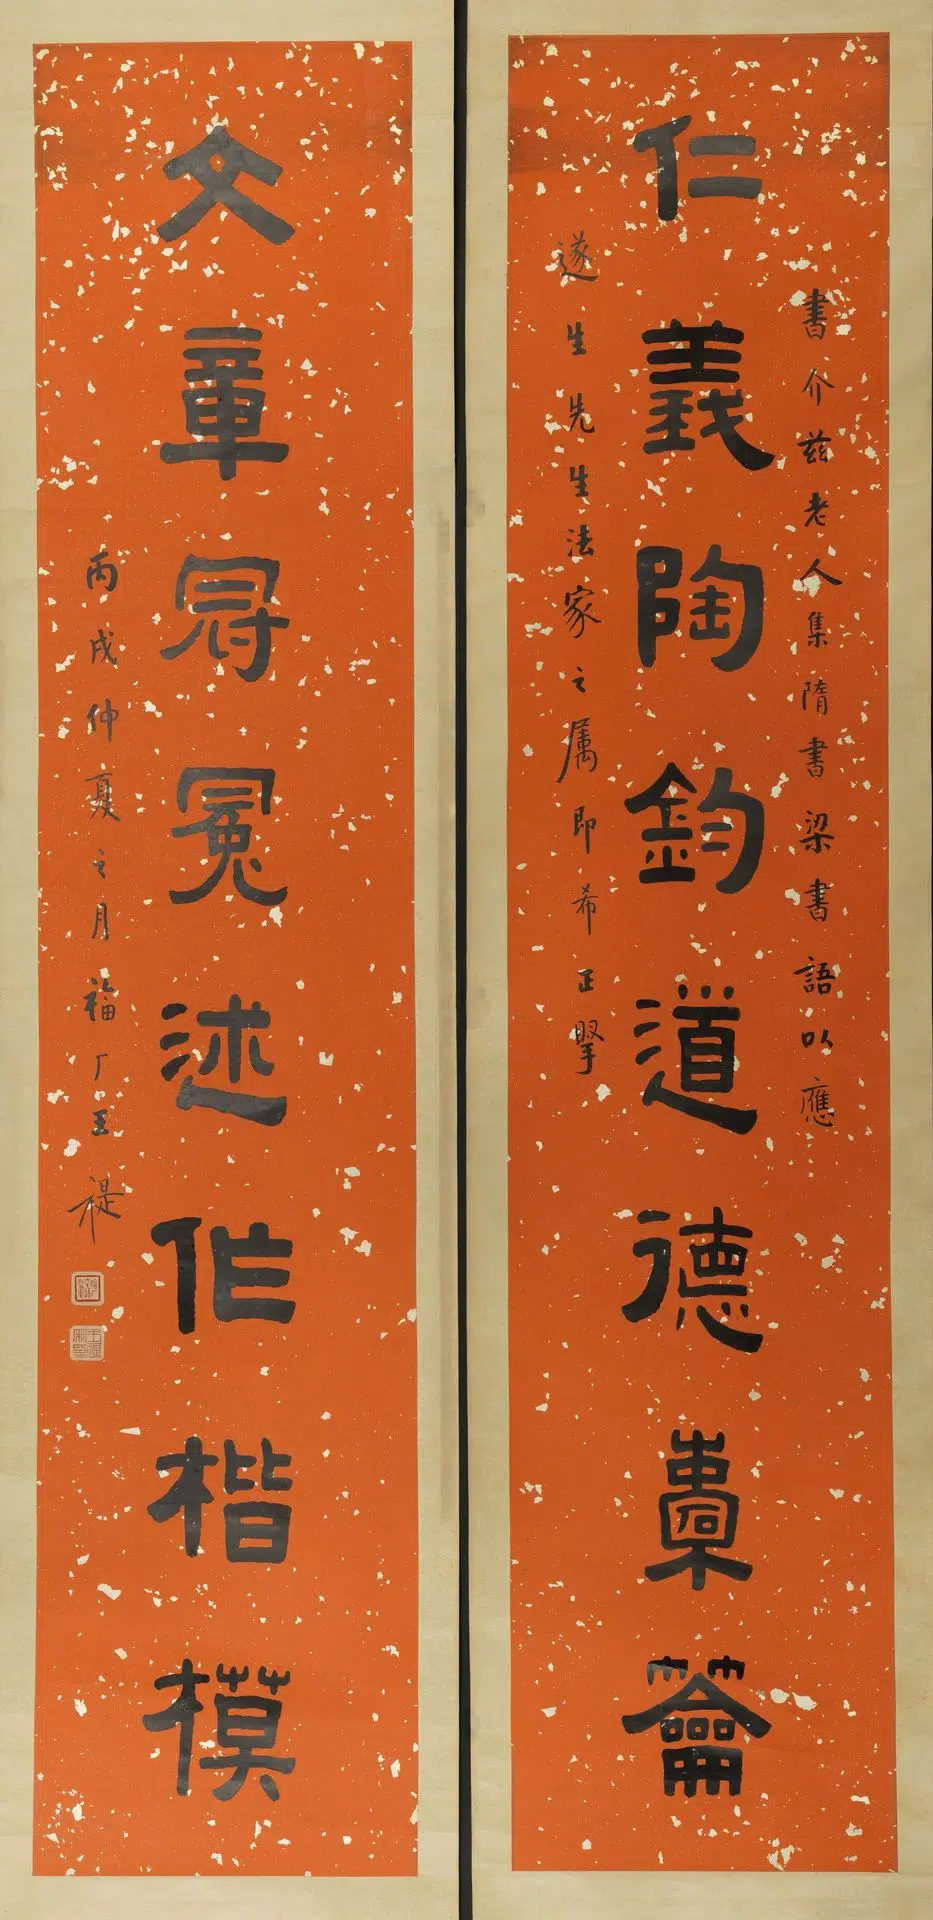 書介茲老人集隋書梁書語以應
仁義陶鈞道德橐籥
遂生先生法家之属即希正掔
文章冠冕述作楷模
丙戌仲夏之月福厂王禔